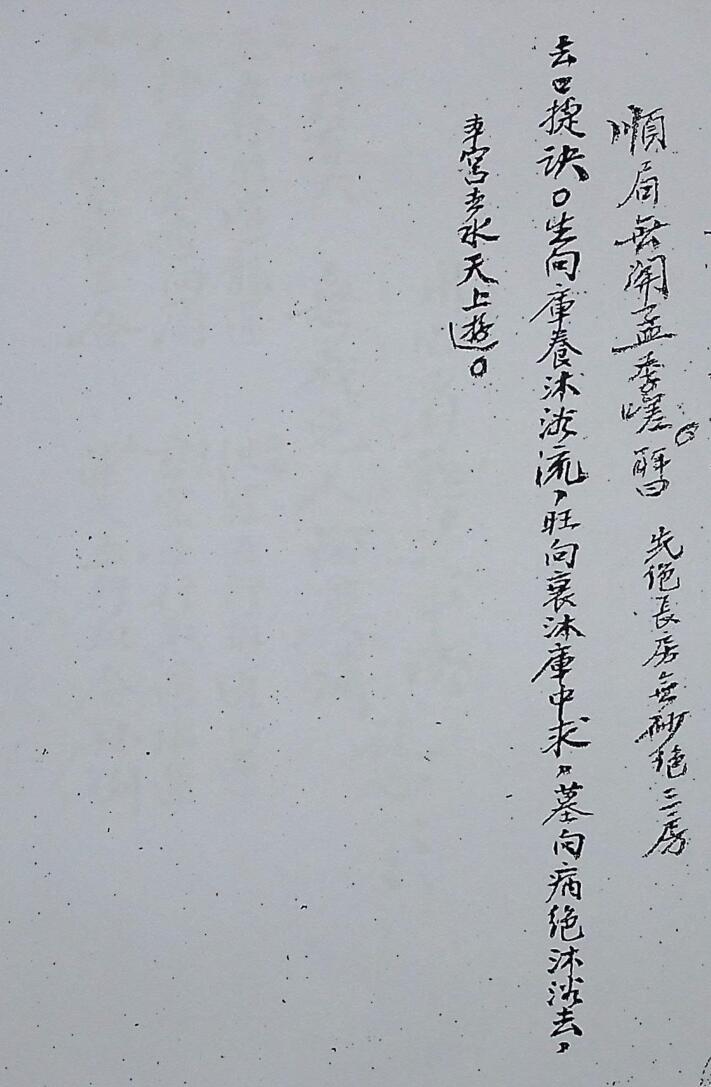 順局無開孟季嗟。 先絕長房無砂絕三房
去口捷訣。生向庫養沐浴流,旺向衰沐庫中求,墓向病絕沐浴去,
本宮去水天上遊。